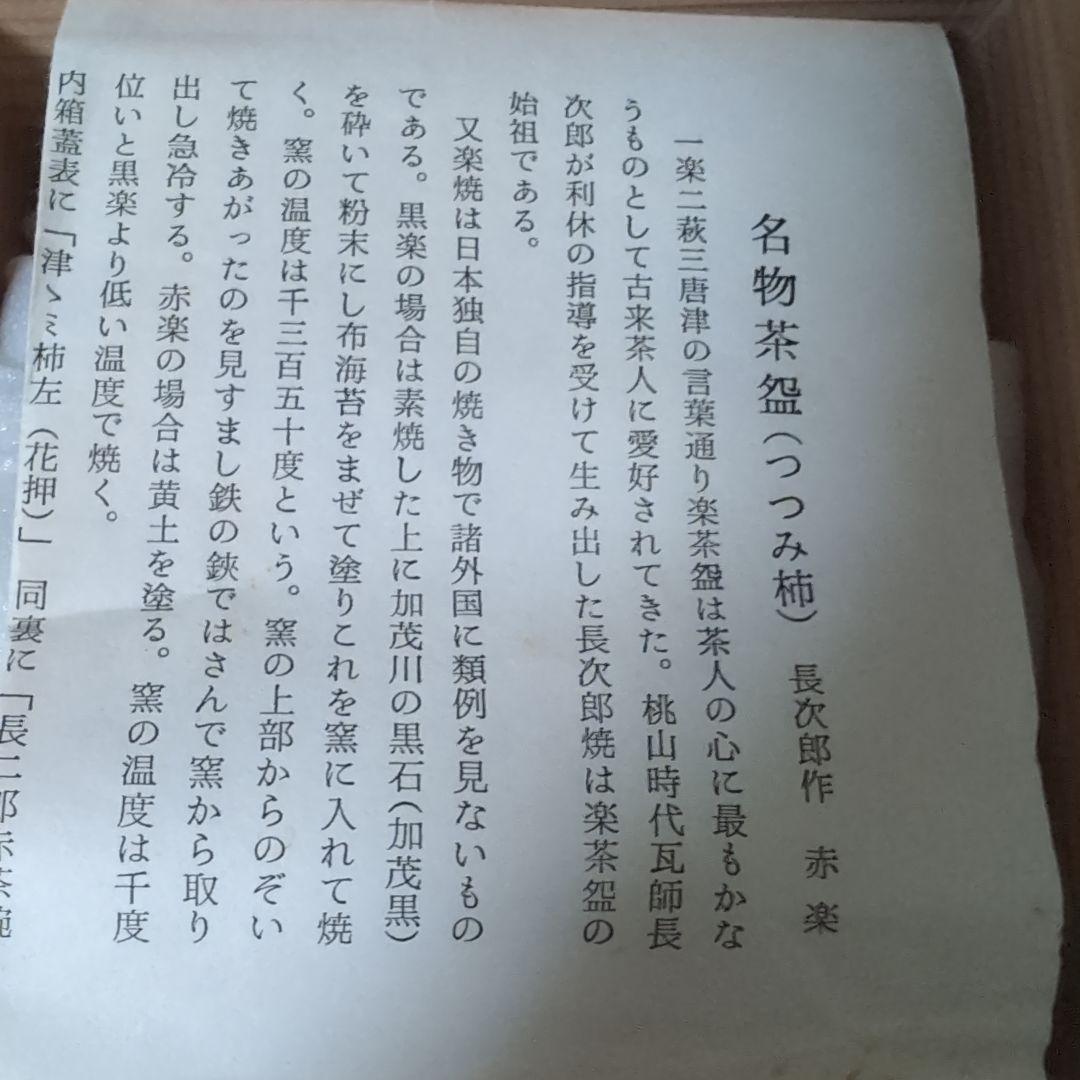 名物茶盌（つつみ柿）　長次郎作　赤楽
一楽二萩三唐津の言葉通り楽茶盌は茶人の心に最もかな
うものとして古来茶人に愛好されてきた。桃山時代瓦師長
次郎が利休の指導を受けて生み出した長次郎焼は楽茶盌の
始祖である。
又楽焼は日本独自の焼き物で諸外国に類例を見ないもの
である。黒楽の場合は素焼した上に加茂川の黒石（加茂黒）
を砕いて粉末にし布海苔をまぜて塗りこれを窯に入れて焼
く。窯の温度は千三百五十度という。窯の上部からのぞい
て焼きあがったのを見すまし鉄の鋏ではさんで窯から取り
出し急冷する。赤楽の場合は黄土を塗る。窯の温度は千度
位いと黒楽より低い温度で焼く。
内箱蓋表に「津ゝミ柿左（花押）」同裏に「長二郎赤茶碗